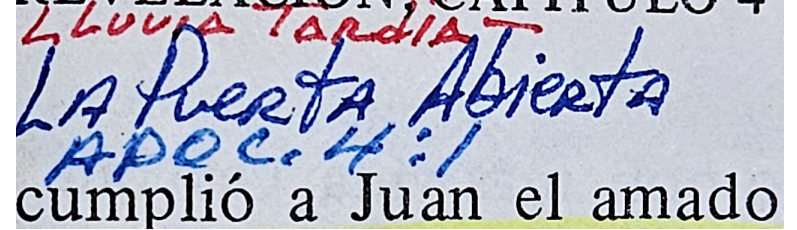 REVELACIÓN, CAPÍTULO 4
Lluvia Tardía
La Puerta Abierta
APOC. 4:1
cumplió a Juan el amado